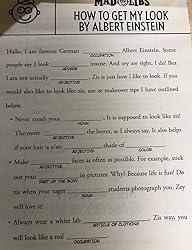 MAD LIBS
HOW TO GET MY LOOK
BY ALBERT EINSTEIN
Hallo. I am famous German Albert Einstein. Some
OCCUPATION
people say I look insane. And zey are right, I do! But
ADVERB
I am not actually . Zis is just how I like to look. If you
ADJECTIVE
would also like to look like zis, use ze makeover tips I have outlined
below.
• Never comb your . It is supposed to look like zis!
NOUN
The more , the better, as I always say. It also helps
ADJECTIVE
if your hair is a/an shade of .
ADJECTIVE
COLOR
• Make faces as often as possible. For example, stick
ADJECTIVE
out your in pictures. Why? Because life is fun! Do
PART OF THE BODY
zis when your eager students photograph you. Zey
NOUN
will love it!
• Always wear a white lab . Zis way, you
ARTICLE OF CLOTHING
will look like a real .
OCCUPATION